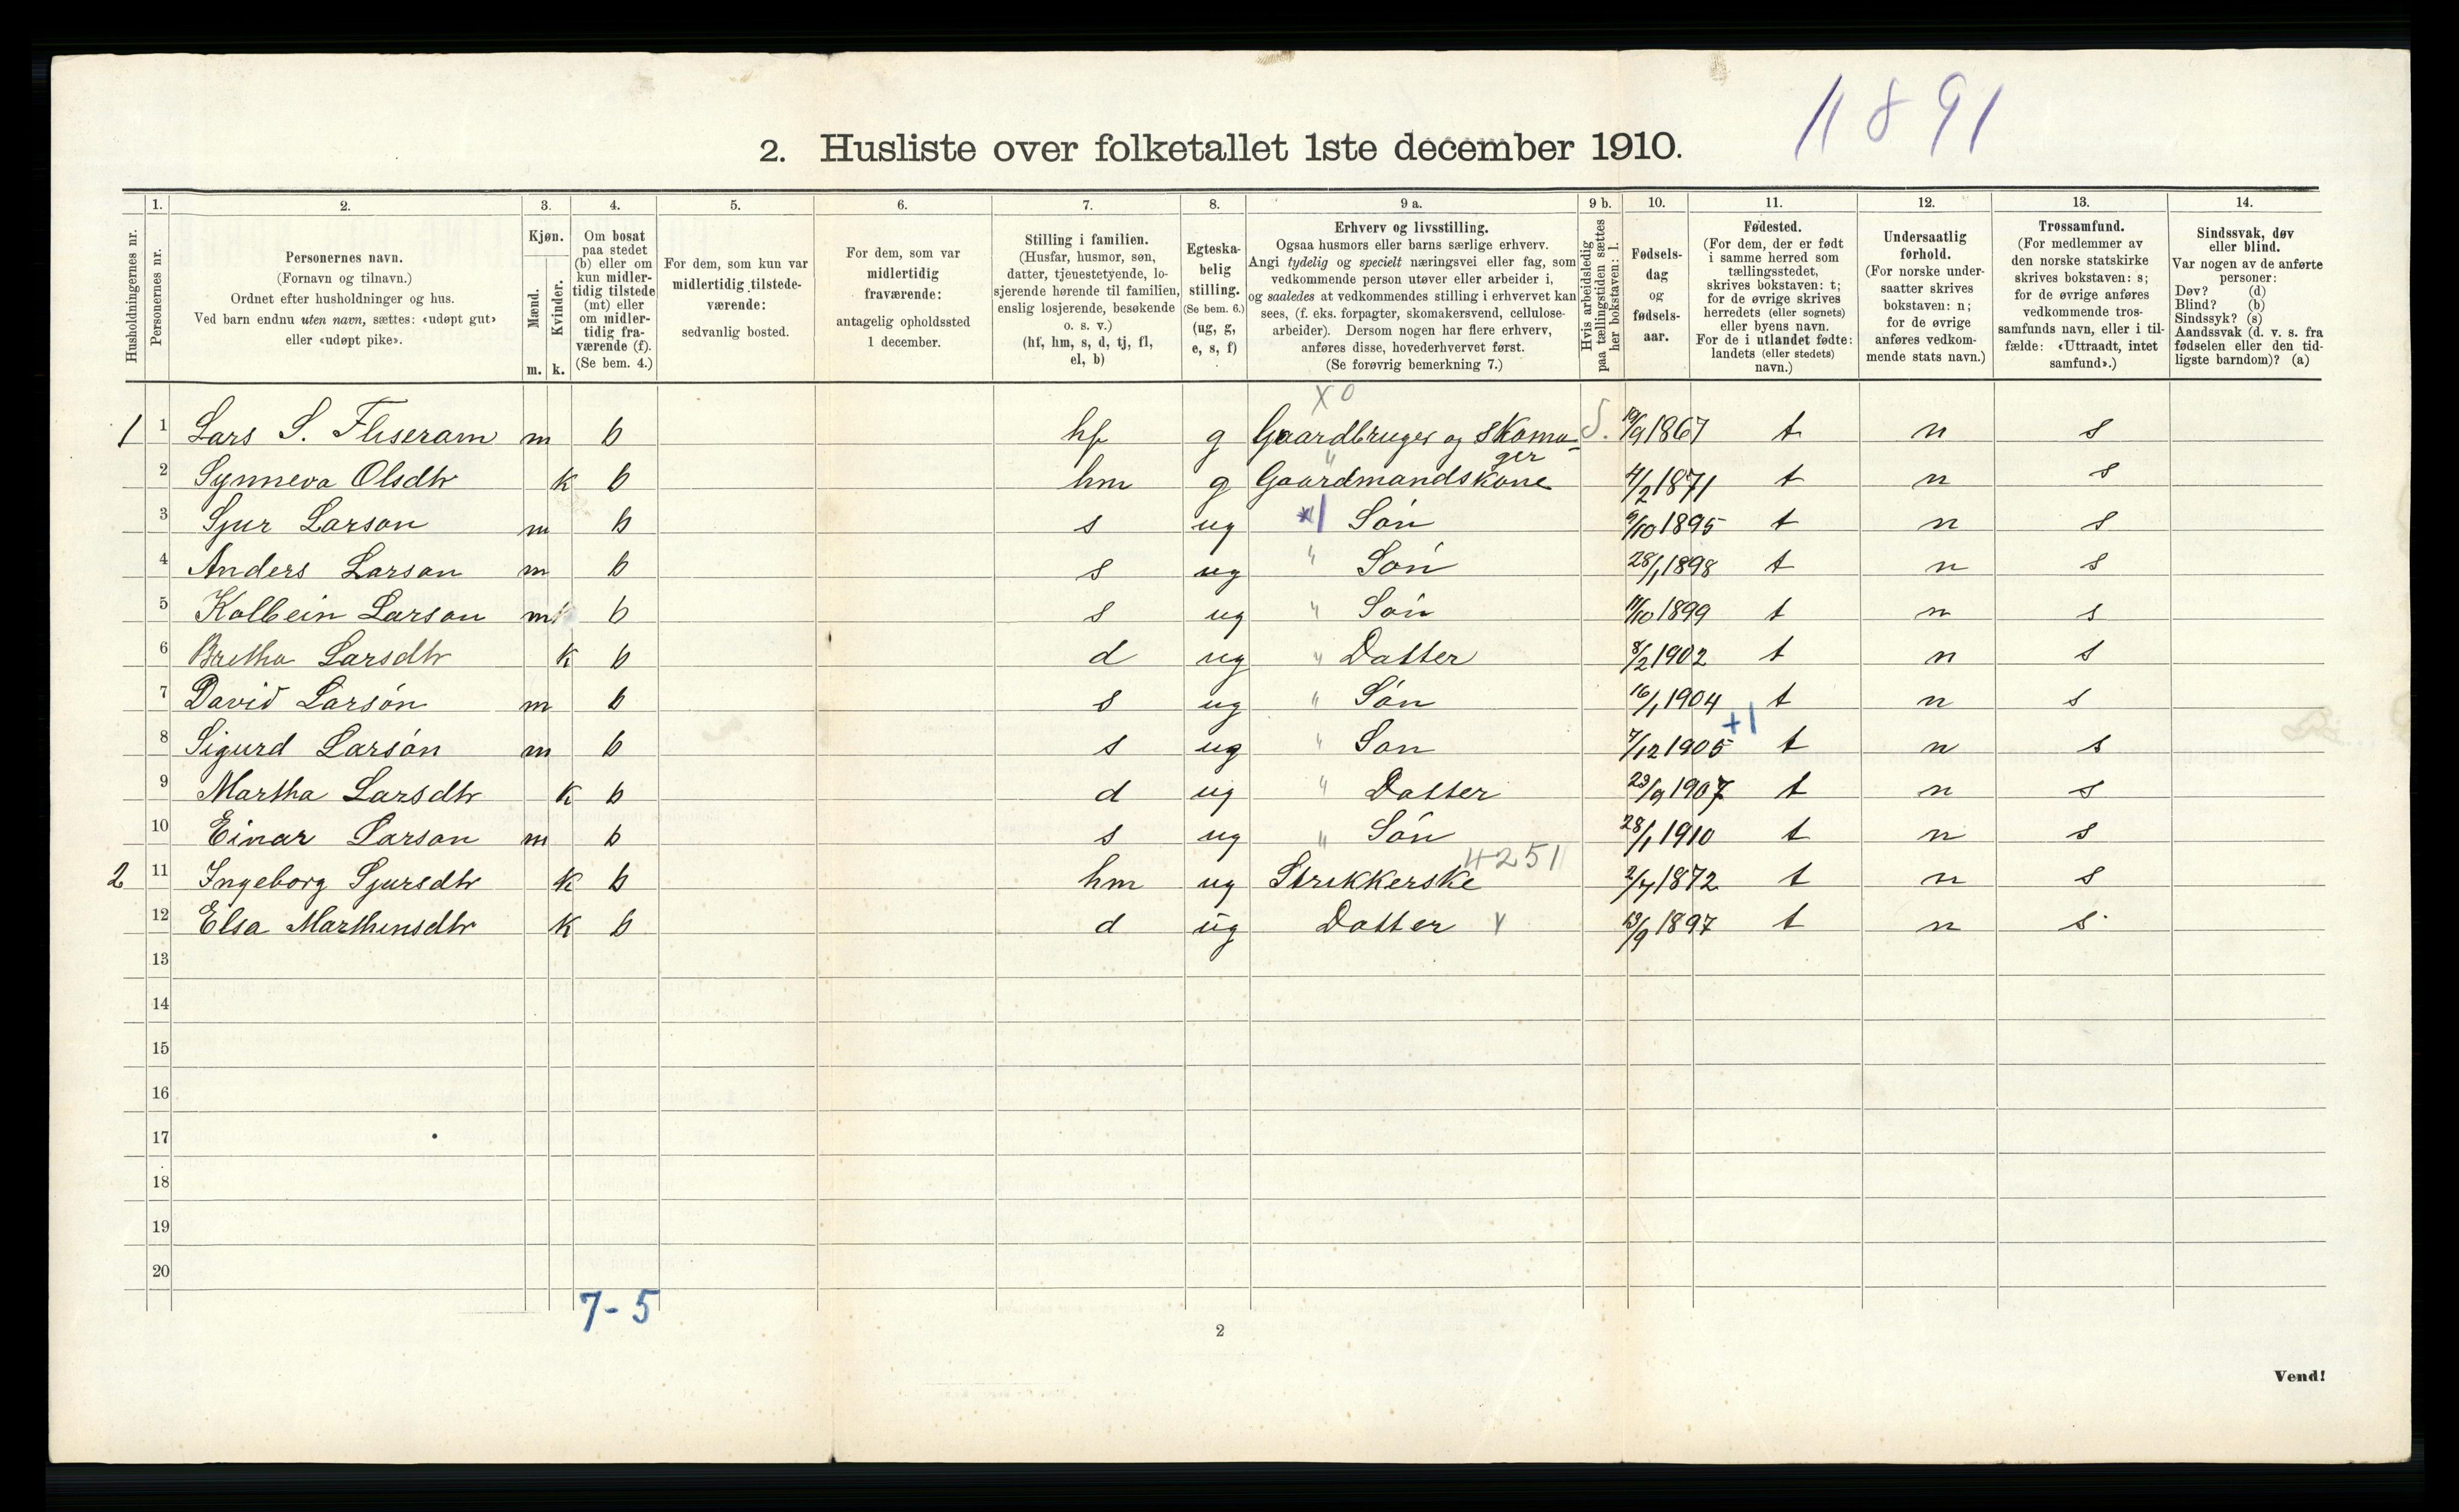 1891
2. Husliste over folketallet 1ste december 1910.
Husholdningernes nr.
1.
Personernes nr.
2.
Personernes navn.
(Fornavn og tilnavn.)
Ordnet efter husholdninger og hus.
Ved barn endnu uten navn, sættes: «udøpt gut»
eller «udøpt pike».
3.
Kjøn.
Mænd.
Kvinder.
m. k.
4.
Om bosat
paa stedet
(b) eller om
kun midler-
tidig tilstede
(mt) eller
om midler-
tidig fra-
værende (f).
(Se bem. 4.)
5.
For dem, som kun var
midlertidig tilstede-
værende:
sedvanlig bosted.
6.
For dem, som var
midlertidig
fraværende:
antagelig opholdssted
1 december.
7.
Stilling i familien.
(Husfar, husmor, søn,
datter, tjenestetyende, lo-
sjerende hørende til familien,
enslig losjerende, besøkende
o. s. v.)
(hf, hm, s, d, tj, fl,
el, b)
8.
Egteska-
belig
stilling.
(Se bem. 6.)
(ug, g,
e, s, f)
9 a.
Erhverv og livsstilling.
Ogsaa husmors eller barns særlige erhverv.
Angi tydelig og specielt næringsvei eller fag, som
vedkommende person utøver eller arbeider i,
og saaledes at vedkommendes stilling i erhvervet kan
sees, (f. eks. forpagter, skomakersvend, cellulose-
arbeider). Dersom nogen har flere erhverv,
anføres disse, hovederhvervet først.
(Se forøvrig bemerkning 7.)
9 b.
Hvis arbeidsledig
paa tællingstiden sættes
her bokstaven: l.
10.
Fødsels-
dag
og
fødsels-
aar.
11.
Fødested.
(For dem, der er født
i samme herred som
tællingsstedet,
skrives bokstaven: t;
for de øvrige skrives
herredets (eller sognets)
eller byens navn.
For de i utlandet fødte:
landets (eller stedets)
navn.)
12.
Undersaatlig
forhold.
(For norske under-
saatter skrives
bokstaven: n;
for de øvrige
anføres vedkom-
mende stats navn.)
13.
Trossamfund.
(For medlemmer av
den norske statskirke
skrives bokstaven: s;
for de øvrige anføres
vedkommende tros-
samfunds navn, eller i til-
fælde: «Uttraadt, intet
samfund».)
14.
Sindssvak, døv
eller blind.
Var nogen av de anførte
personer:
Døv? (d)
Blind? (b)
Sindssyk? (s)
Aandssvak (d. v. s. fra
fødselen eller den tid-
ligste barndom)? (a)
X 0
1 1 Lars S. Fliseram m b hf g Gaardbruger og Skoma- S. 19/9 1867 t n s
ger
2 Synneva Olsdtr k b hm g " Gaardmandskone 4/2 1871 t n s
3 Sjur Larson m b s ug Són 9/10 1895 t n s
4 Anders Larson m b s ug " Són 28/1 1898 t n s
5 Kolbein Larson m b s ug " Són 11/10 1899 t n s
6 Bretha Larsdtr k b d ug " Datter 8/2 1902 t n s
7 David Larsón m b s ug " Són 16/1 1904 t n s
+1
8 Sigurd Larsón m b s ug " Son 7/12 1905 t n s
9 Martha Larsdtr k b d ug " Datter 23/9 1907 t n s
10 Einar Larson m b s ug " Són 28/1 1910 t n s
4251
2 11 Ingeborg Sjursdtr k b hm ug Strikkerske 2/7 1872 t n s
12 Elsa Marthinsdtr k b d ug Datter 13/9 1897 t n s
13
14
15
16
17
18
19
20
7-5
2
Vend!